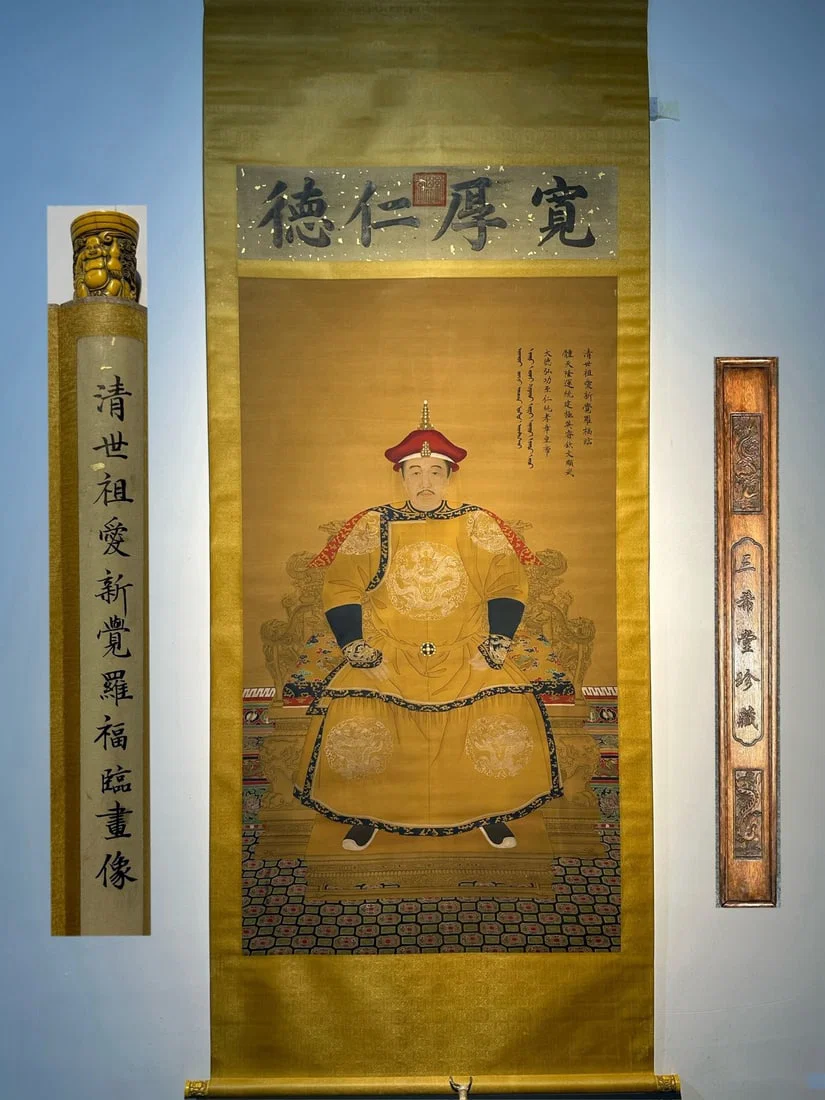 寬厚仁德
清世祖愛新覺羅福臨
體天隆運統建極英睿欽文顯武
大德弘功至仁純孝章皇帝
清世祖愛新覺羅福臨畫像
三希堂珍藏